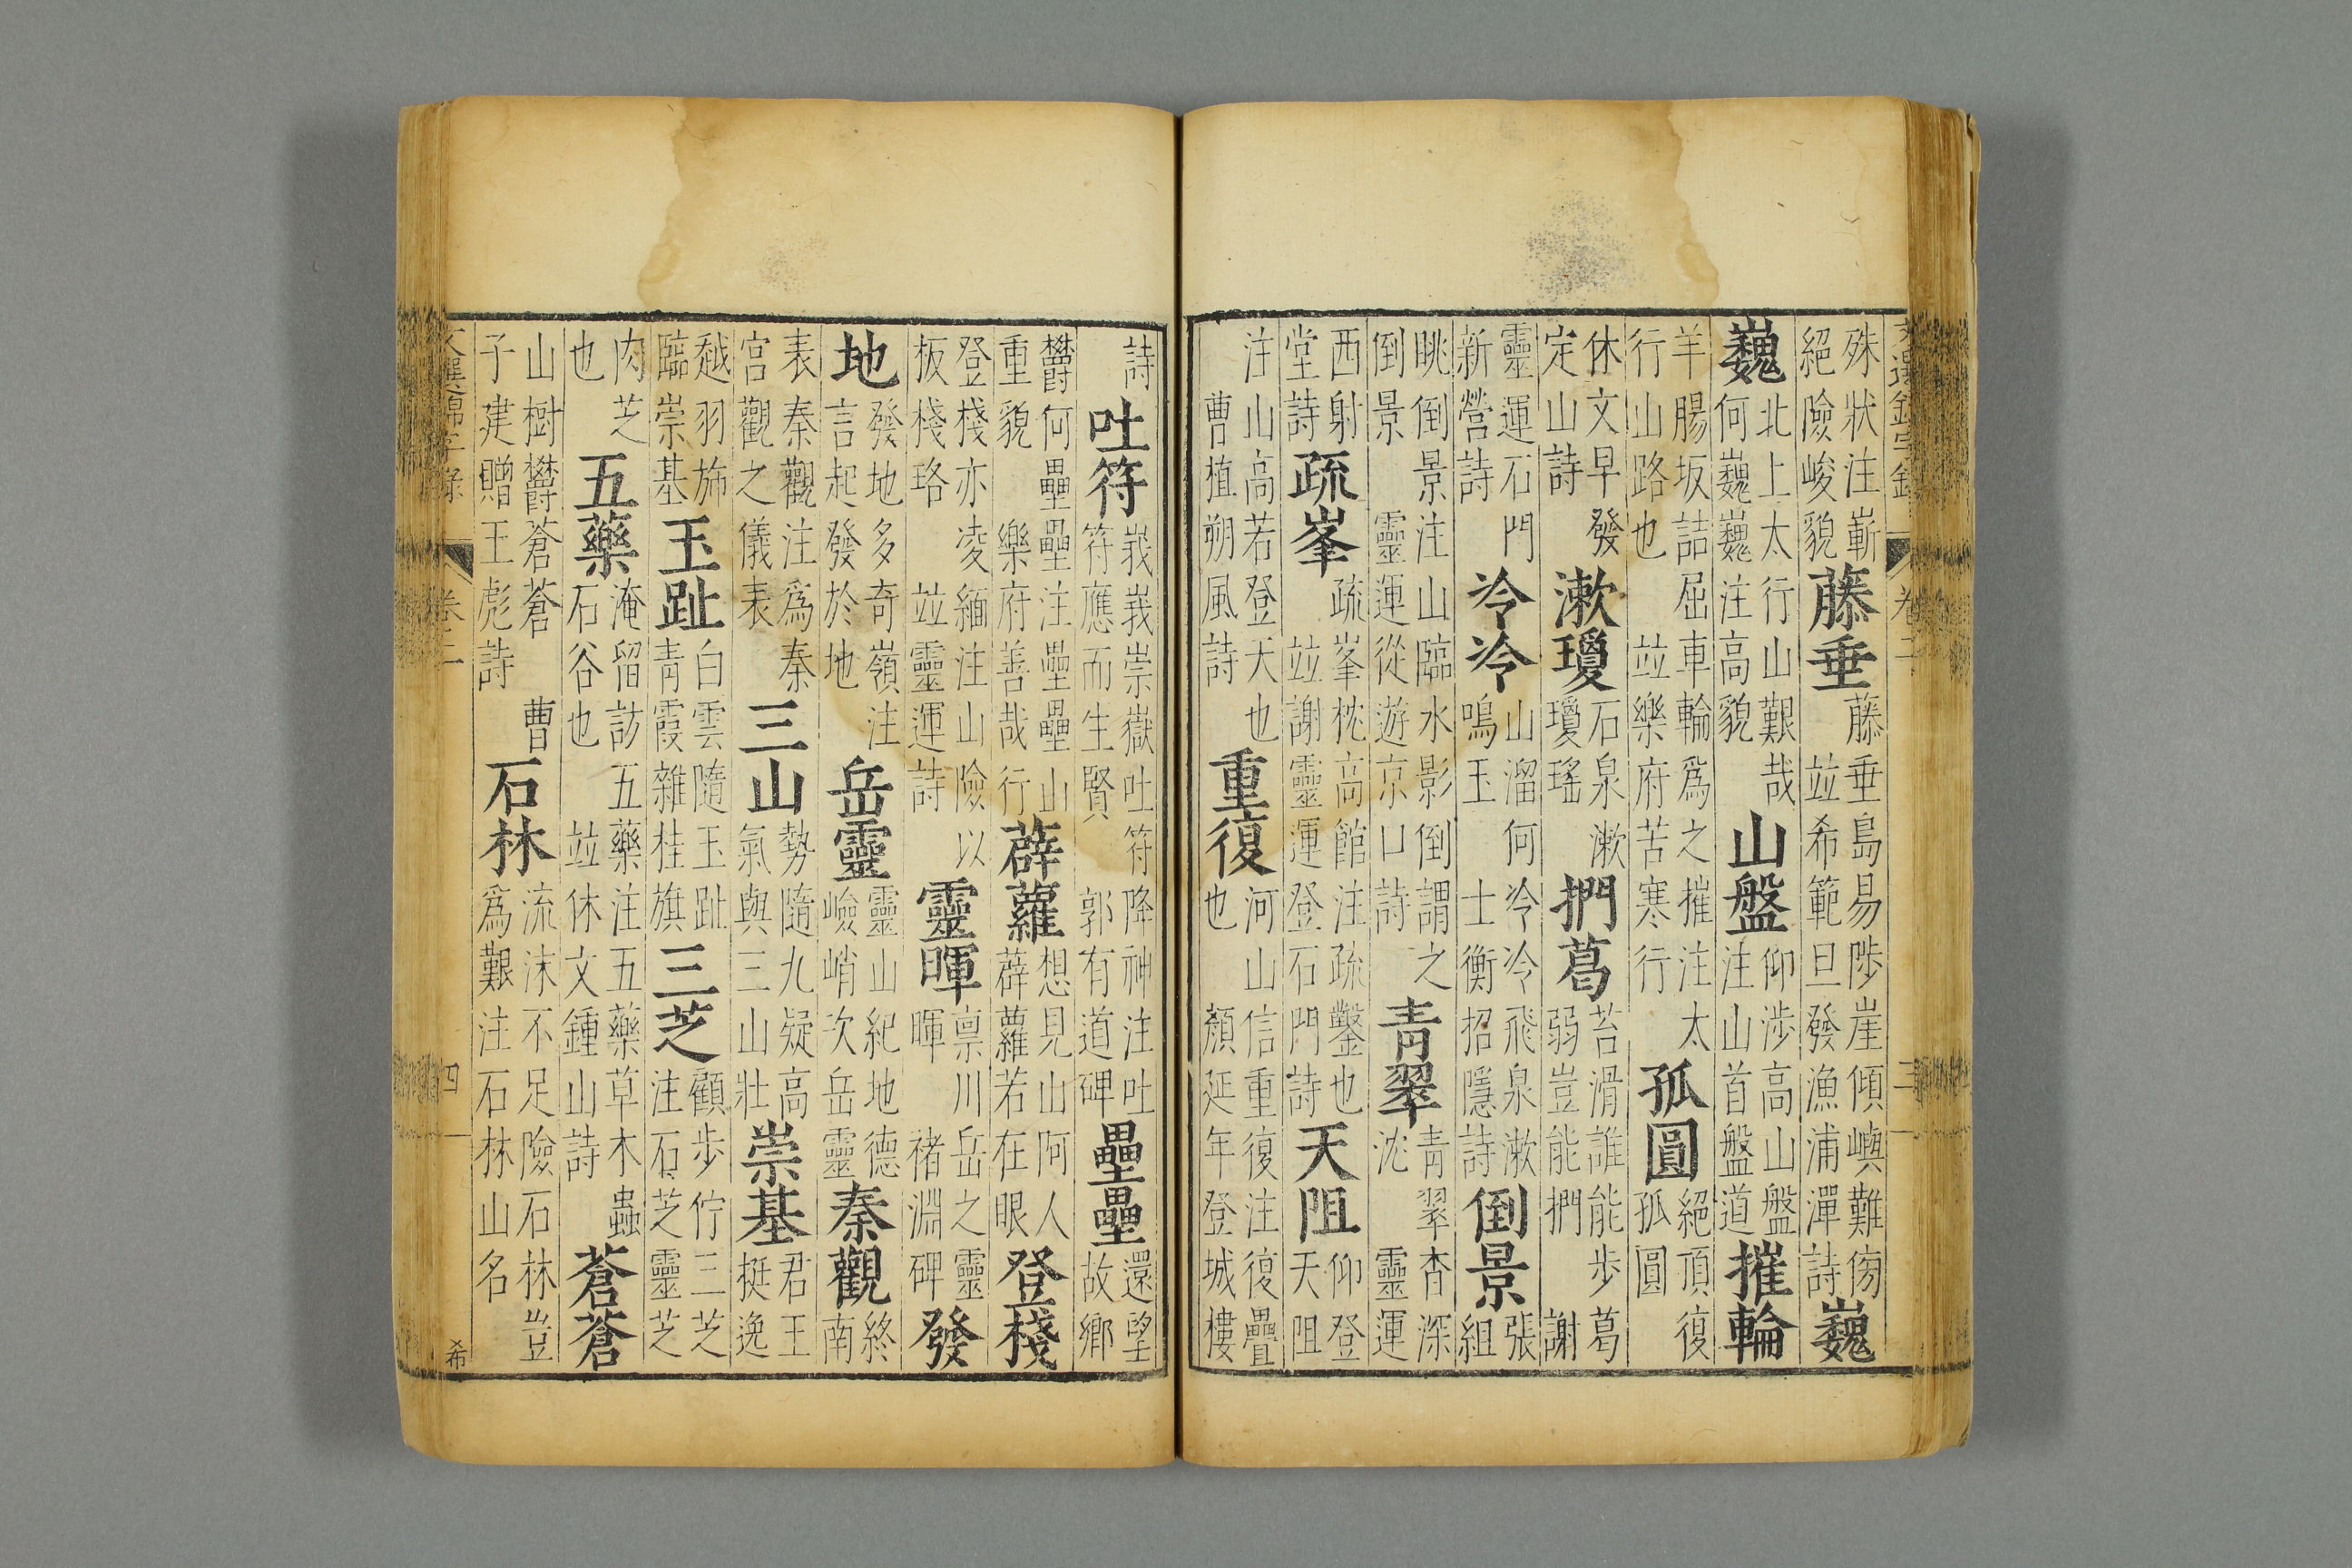 文選錦字錄 卷二 三
殊狀注嶄絕險峻貌 藤垂 藤垂島易陟崖傾嶼難傍竝希範旦發漁浦潭詩 巍
巍 北上太行山艱哉何巍巍注高貌 山盤 仰涉高山盤注山首盤道 摧輪
羊腸坂詰屈車輪爲之摧注太行山路也 竝樂府苦寒行 孤圓 絕頂復孤圓
休文早發定山詩 漱瓊 石泉漱瓊瑤 捫葛 苔滑誰能步葛弱豈能捫 謝
靈運石門新營詩 泠泠 山溜何泠泠飛泉漱鳴玉 士衡招隱詩 倒景 張組
眺倒景注山臨水影倒謂之倒景 靈運從遊京口詩 青翠 青翠杳深沈 靈運
西射堂詩 疏峯 疏峯枕高館注疏鑿也 竝謝靈運登石門詩 天阻 仰登天阻
注山高若登天也 曹植朔風詩 重復 河山信重復注復疊也 顏延年登城樓
詩 吐符 峩峩崇嶽吐符降神注吐符應而生賢 郭有道碑 壘壘 還望故鄉
鬱何壘壘注壘壘山重貌 樂府善哉行 薜蘿 想見山阿人薜蘿若在眼 登棧
登棧亦凌緬注山險以板棧珞 竝靈運詩 靈暉 稟川岳之靈暉 褚淵碑 發
地 發地多奇嶺注言起發於地 岳靈 靈山紀地德嶮峭次岳靈 秦觀 終南
表秦觀注爲秦宮觀之儀表 三山 勢隨九疑高氣與三山壯 崇基 君王挺逸
越羽斾臨崇基 玉趾 白雲隨玉趾青霞雜桂旗 三芝 顧步佇三芝注石芝靈芝
肉芝也 五藥 淹留訪五藥注五藥草木蟲石谷也 竝休文鍾山詩 蒼蒼
山樹鬱蒼蒼 曹子建贈王彪詩 石林 流沫不足險石林豈爲艱注石林山名
文選錦字錄 卷二 四 希